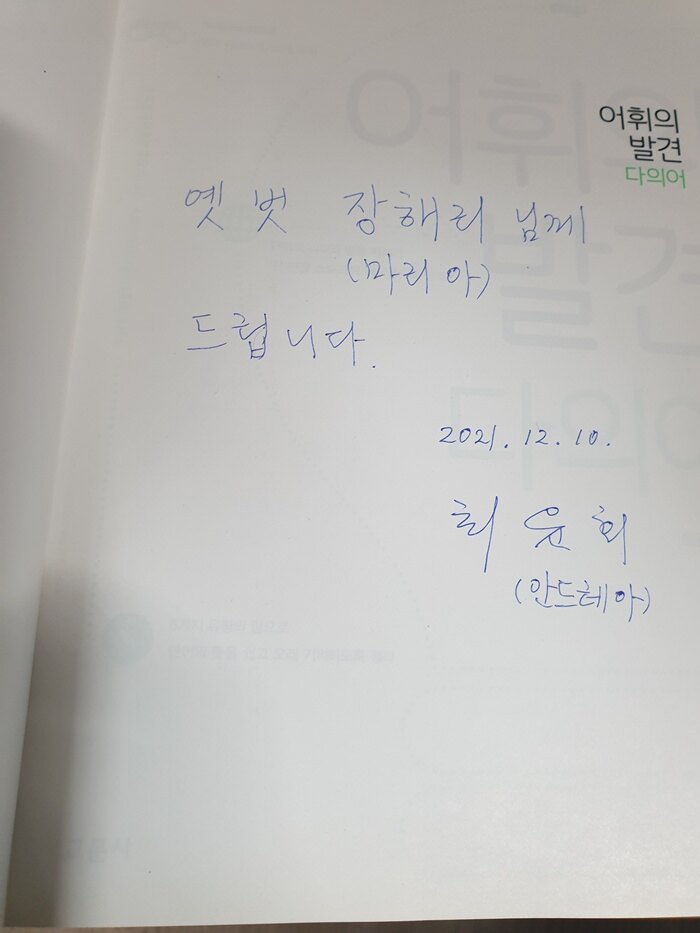 어휘의
발견
다의어
옛 벗 장해리 님께
(마리아)
드립니다.
2021. 12. 10.
최윤희
(안드레아)